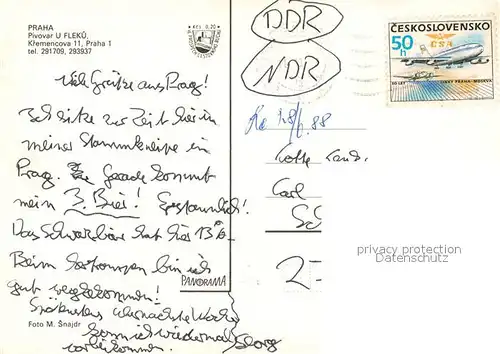 PRAHA
Pivovar U FLEKŮ,
Křemencova 11, Praha 1
tel. 291709, 293937
Kčs 0,20
DDR
NDR
ČESKOSLOVENSKO
50 h
ČSA
50 LET LINKY PRAHA-MOSKVA
Viele Grüße aus Prag!
Ich sitze zur Zeit hier in
meiner Stammkneipe in
Prag. Gerade kommt
mein 3. Bier! Erstaunlich!
Das Schwarzbier hat hier 13%
Beim bin ich
gut weggekommen!
Spätestens übernächste Woche
komm ich wiedermal
vorbeikommen. Georg
88
Carl
2-
PANORAMA
Foto M. Šnajdr
privacy protection
Datenschutz